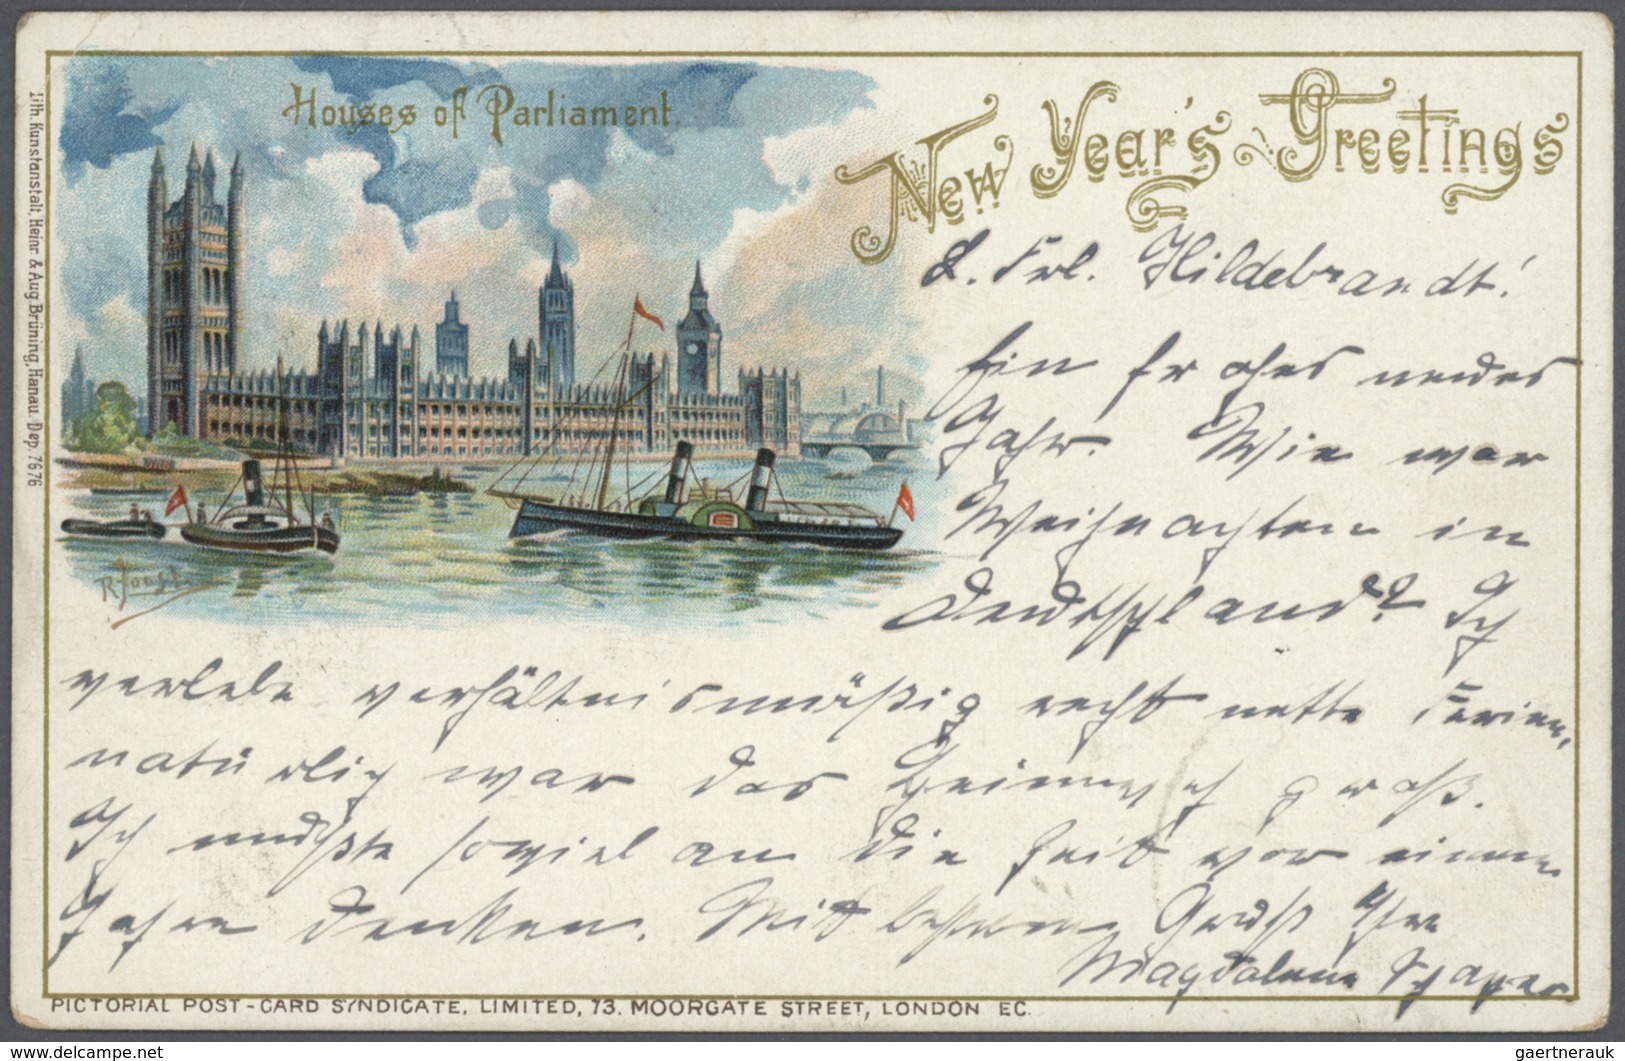 Houses of Parliament.
New Year's Greetings
L. Frl. Hildebrandt!
Ein frohes neues
Jahr. Wie war
Weihnachten in
Deutschland? Ich
verlebe verhältnismäßig recht nette Ferien,
natürlich war das Heimweh groß.
Ich mußte soviel an die Zeit vor einem
Jahre denken. Mit bestem Gruß Ihre
Magdalene Schaper.
R. Joost
Lith. Kunstanstalt, Heinr. & Aug. Brüning, Hanau. Dep. 7676
PICTORIAL POST-CARD SYNDICATE, LIMITED, 73. MOORGATE STREET, LONDON EC.
www.delcampe.net
gaertnerauk